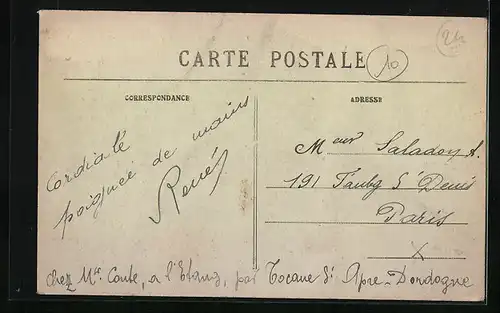 24
10
CARTE POSTALE
CORRESPONDANCE
ADRESSE
Cordiale
poignée de mains
René
Meur Saladoy A.
191 Faubg St Denis
Paris
X
chez Mr Conte, a l'Etang, par Tocane St Apre-Dordogne